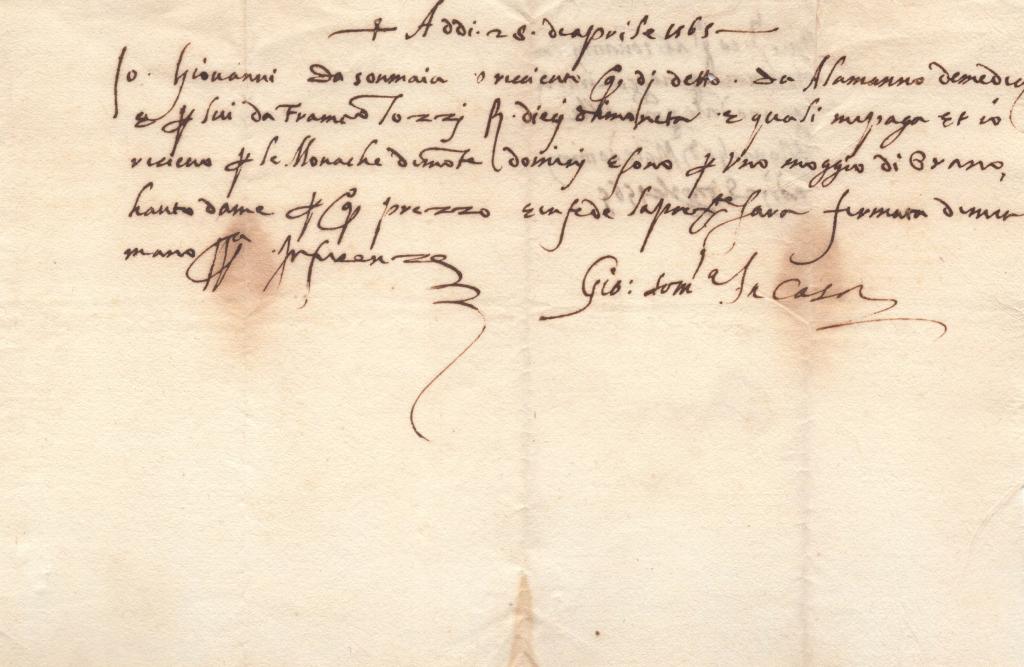 + Addi. 28. daprile 1565
Io. Giovanni da sommaia o ricievuto qº dj detto. da Alamanno demedicj
e p lui da Franco Tozzj ₰. diecj dimoneta e qualj mipaga et io
ricievo p le Monache dimonte dominj e sono p Uno moggio di Grano,
hauto dame p qº prezzo e infede lapresᵗᵉ sara fermata dimia
mano In firenze
Gio: somª In Casa